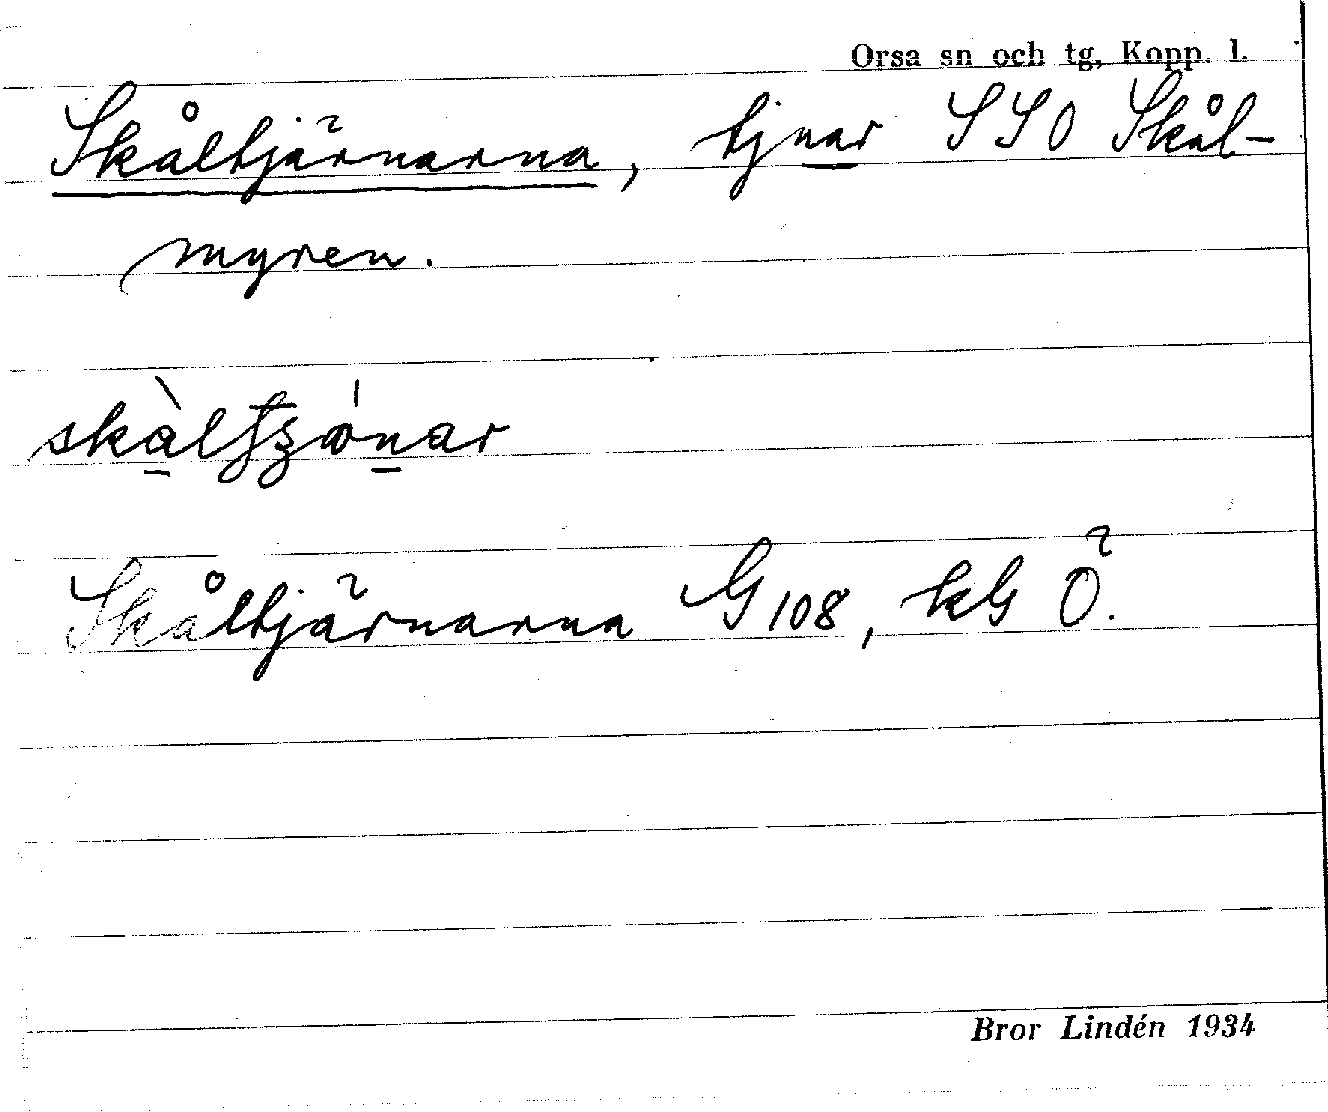 Orsa sn och tg, Kopp. l.
Skåltjärnarna, tjnar SSO Skål-
myren.
Skåltjärnarna G 108, kG Ö.
Bror Lindén 1934